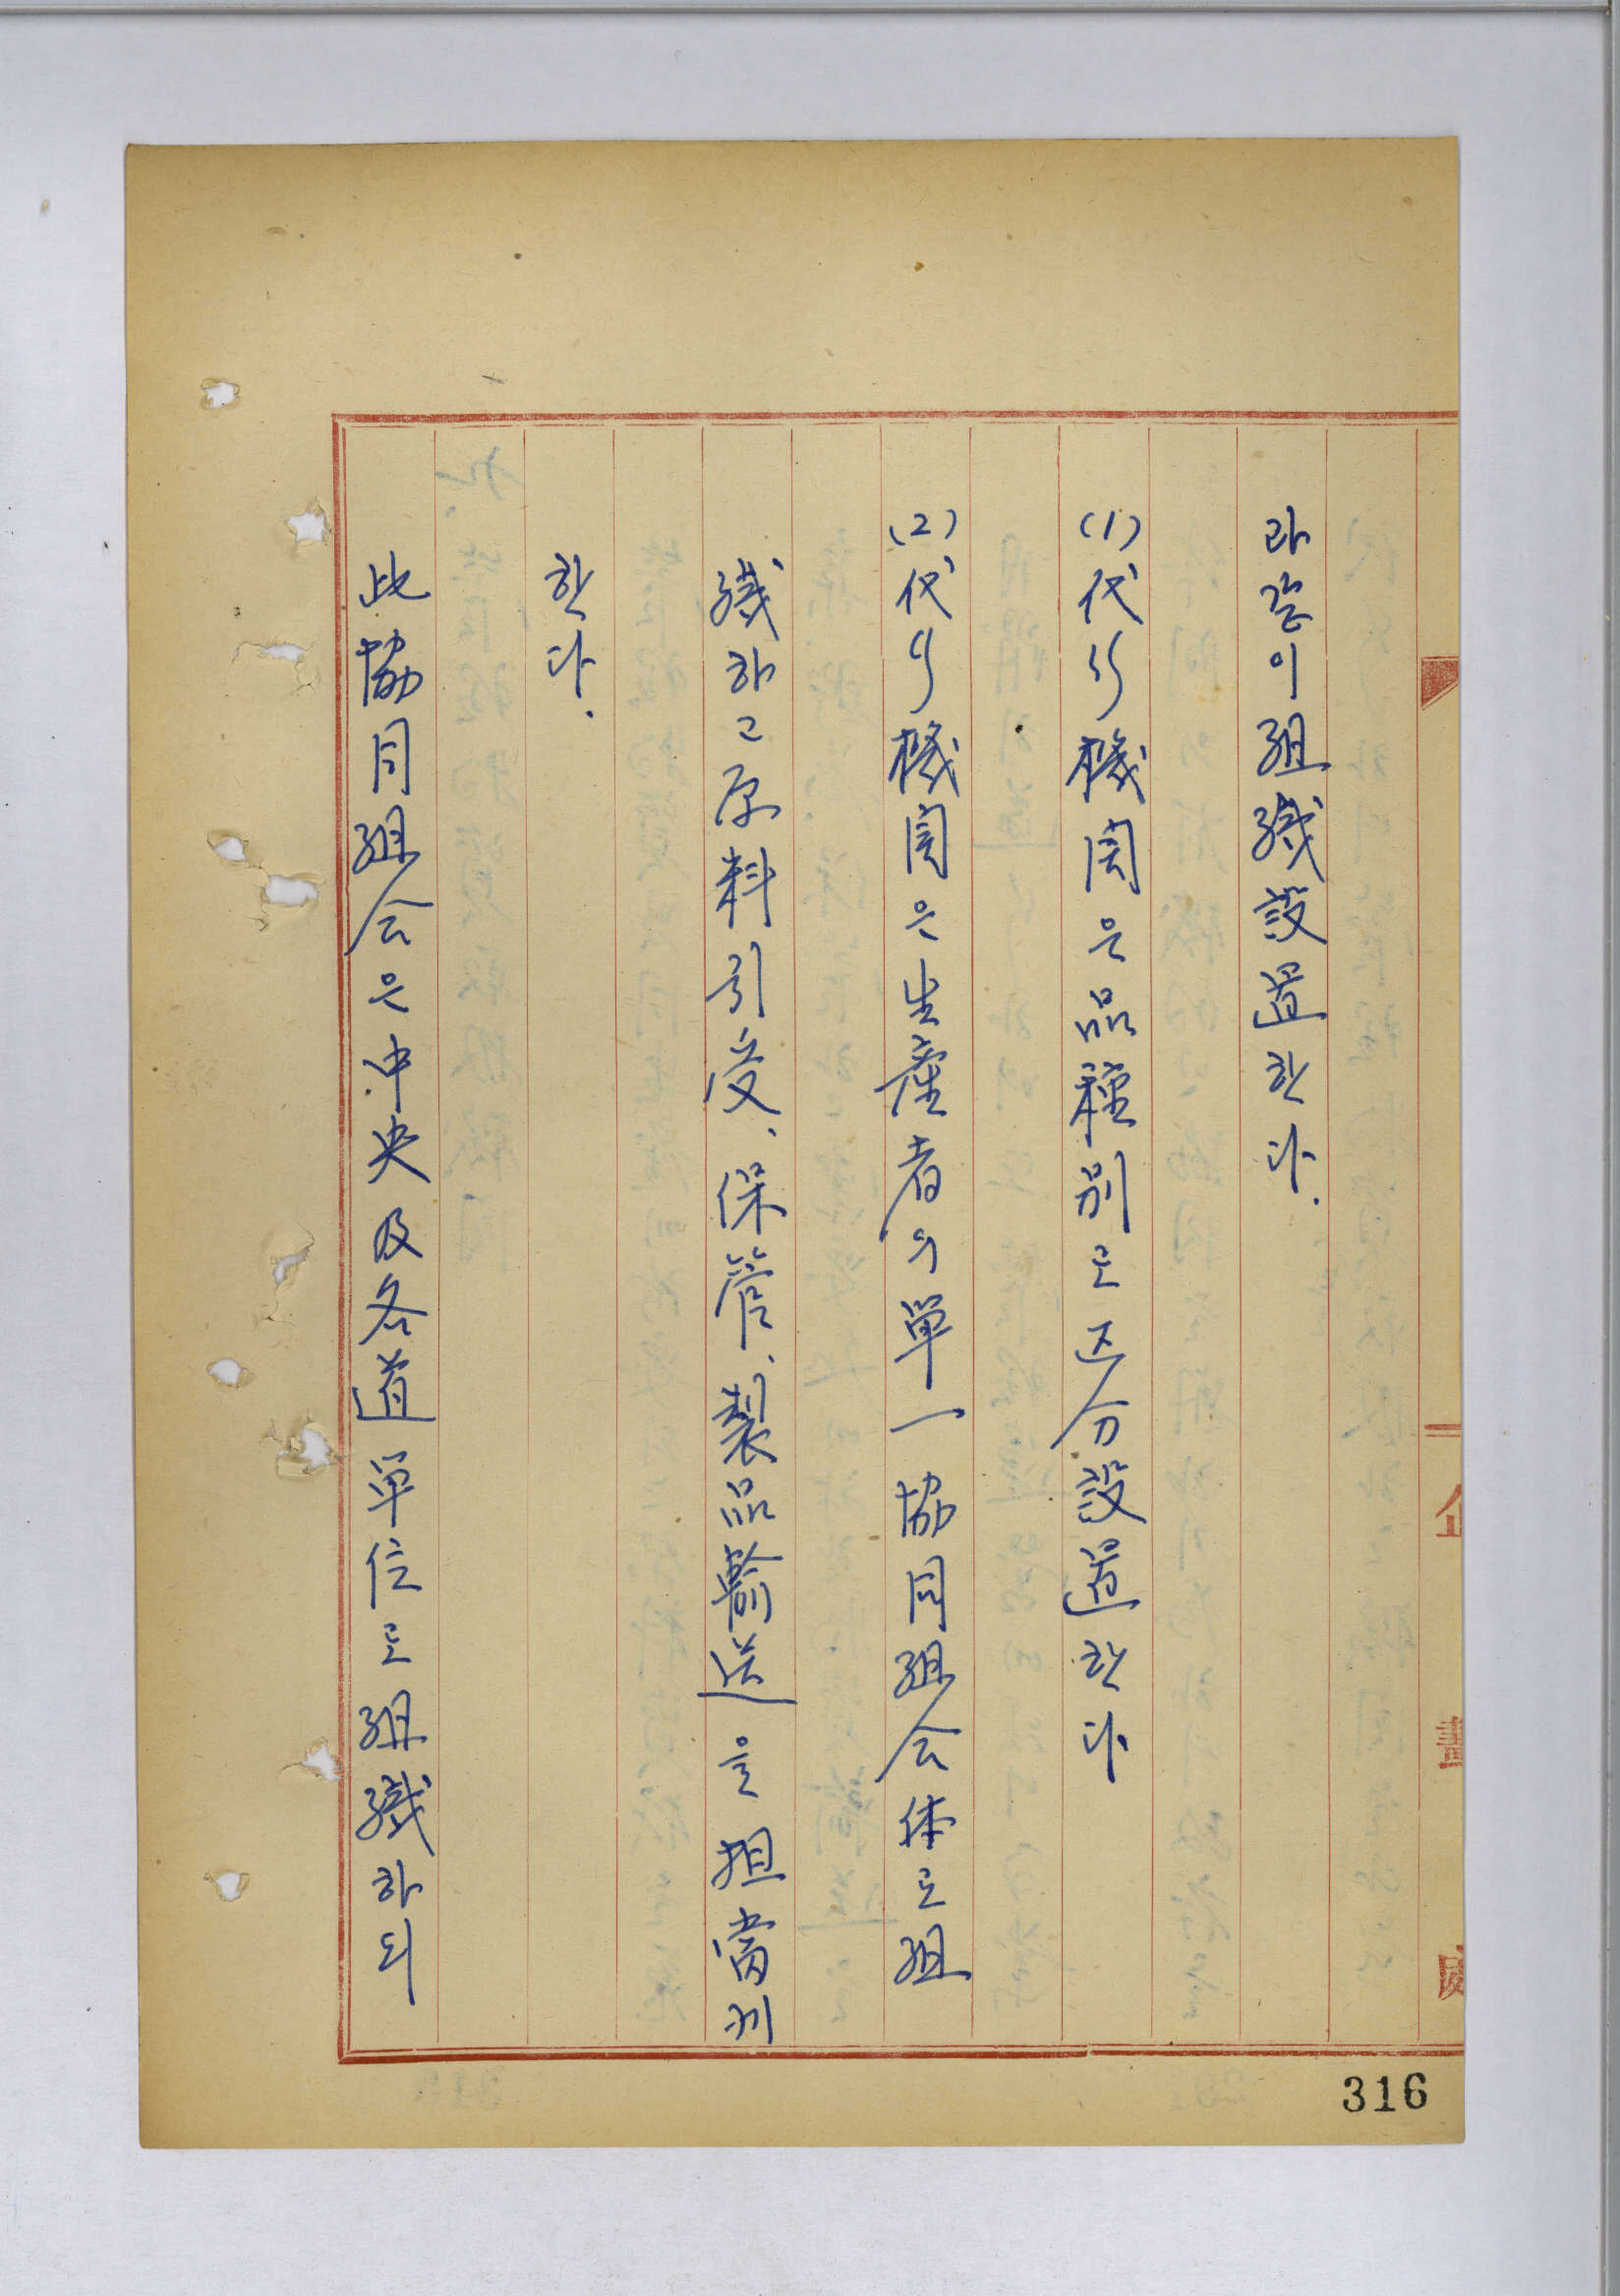 라같이組織設置한다.
(1)代行機関은品種別로区分設置한다
(2)代行機関은生産者의單一協同組合体로組
織하고原料引受、保管、製品專送을担當케
한다.
此協同組合은中央及各道單位로組織하되
企畫
316